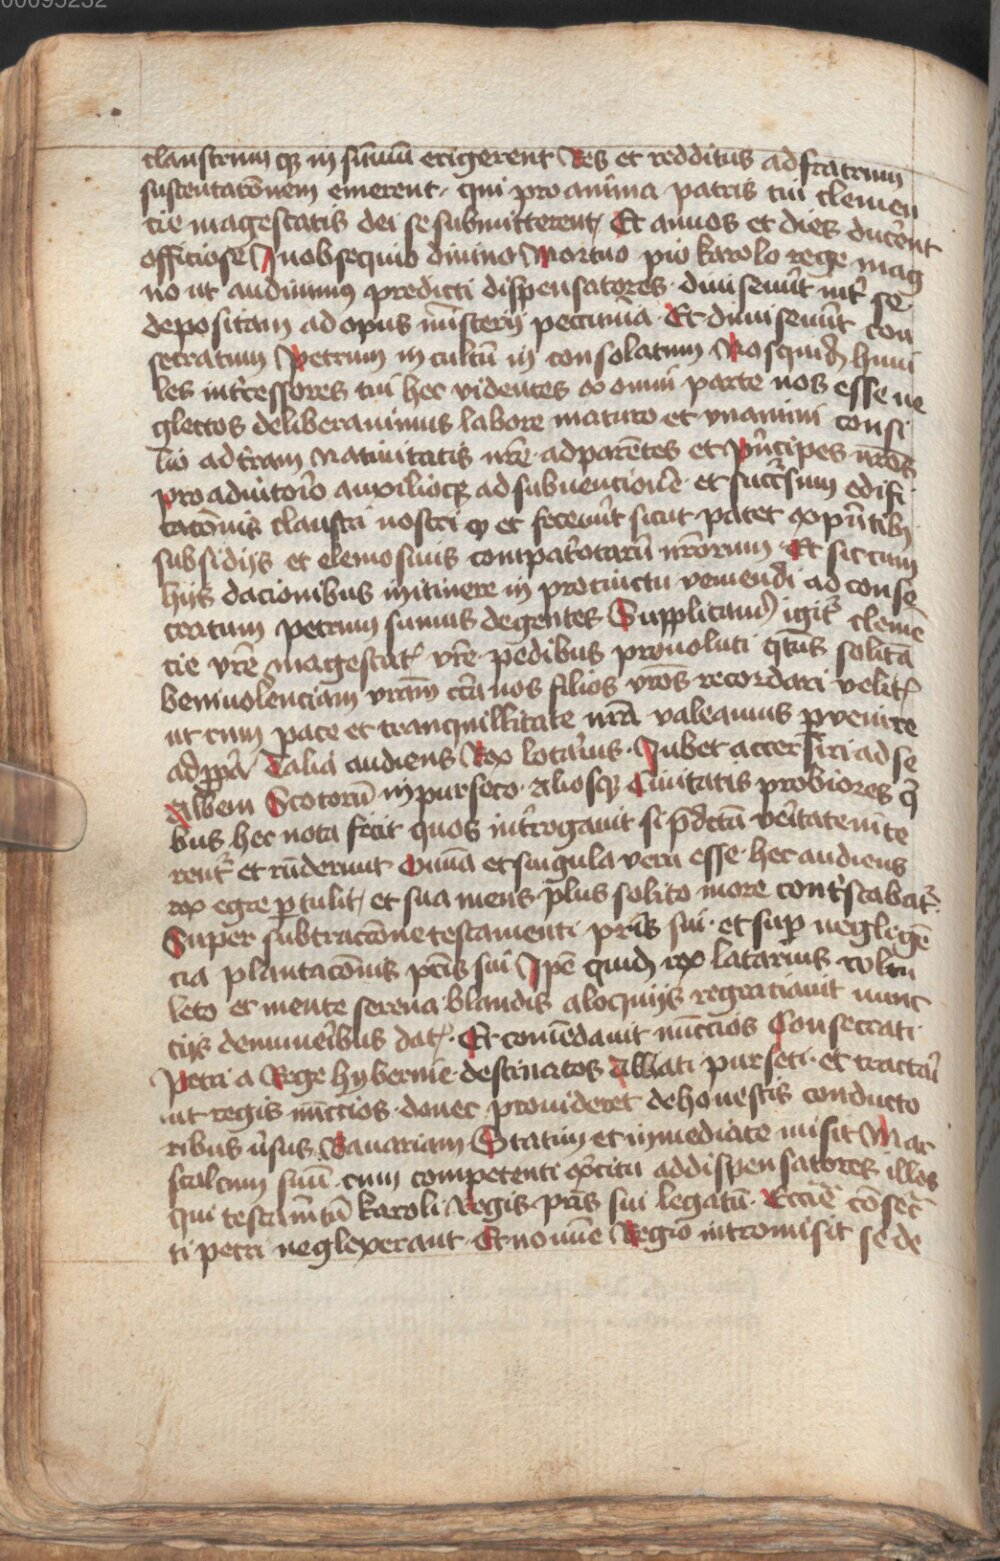 00095232
claustrum qz in sūmū erigerent Res et redditus ad fratrum
sustentacōnem emerent, qui pro anima patris tui clemen
tie magestatis dei se submitterent, Et annos et dies ducēnt
officiose In obsequio divino Mortuo pio karolo rege mag
no ut audivimus predicti dispensatores divisernt int̉ se
depositam ad opus mīsterij peccuniā Et dimisernt con
secratum Petrum in cultū in consolatum Nosquid humi
les int̉cessores tui hec videntes ex omni parte nos esse ne
glectos deliberavimus labore maturo et unanimi consi
lio ad t̉ram Nativitatis nr̄e ad parētes et Pn̉cipes nr̄os
pro adiutor̉io auxilioqz ad subventionē et succ̉sum edifi
cacōnis claustri nostri qz et fecernt sicut patet ex pn̄tibz
subsidijs et elemosinis compat̉otarū nr̄orum Et sic cum
hijs dacionibus in itinere in procinctu veniendi ad conse
cratum petrum sumus degentes Supplicand igit̉ clemē
cie vr̄e magestat, vr̄e pedibus provoluti qt̄us solitā
benivolenciam vrām cc̄a nos filios vr̄os recordari velit,
ut cum pace et tranquillitate nr̄a valeamus pvenire
ad ppā Talia audiens Rex lotar̉ius Iubet accersiri ad se
Abbem Scotorū in purseto aliosqz Civitatis probiores q̉
bus hec nota fecit quos int̉rogavit si p̄dc̄tā v̉itatem te
rent̉ et rn̄derunt Omīa et singula vera esse hec audiens
rex egre ptulit, et sua mens plus solito more cont̉stabat̉
Super subtraccōne testamenti pr̄is sui et sup neglegē
cia plantacōnis pc̄is sui Ipē quid rex latarius vultu
leto et mente serena blandis aloquijs regratiavit nunc
tijs de munēibus dat, Et comēdavit nūccios Consecrati
Petri a Rege hybernie destinatos Abbati purseti et tractar̉
ut regis nūccios donec provideret de honestis conducto
ribus v̉sus Bavariam Statim et inmediate misit Mar
scalcum suū cum competenti exc̉citu ad dispensatores illos
qui testam̄tū karoli Regis pr̄is sui legatū Ecc̄ie cōsec̄
ti petri neglexerant Et no mīe Regio intromisit se de